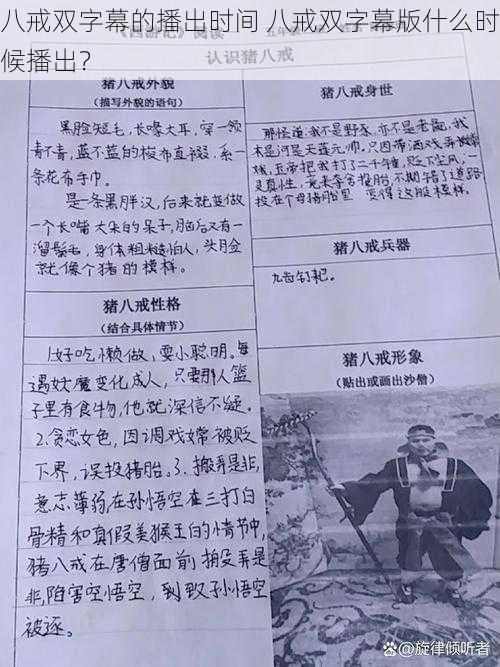 八戒双字幕的播出时间 八戒双字幕版什么时
候播出？
《西游记》阅读
认识猪八戒
猪八戒外貌
（描写外貌的语句）
黑脸短毛，长喙大耳，穿一领
青不青，蓝不蓝的梭布直裰，系一
条花布手巾。
是一条黑胖汉，后来就变做
一个长嘴大耳的呆子，脑后又有一
溜鬃毛，身体粗糙怕人，头脸
就像个猪的模样。
猪八戒身世
那怪道：我不是野豕，亦不是老彘，我
本是河是天蓬元帅，只因带酒戏弄嫦
娥，玉帝把我打了二千锤，贬下尘凡，一
灵真性，竟来夺舍投胎，不期错了道路
投在个母猪胎里，变得这般模样。
猪八戒兵器
九齿钉耙。
猪八戒性格
（结合具体情节）
1.好吃懒做，耍小聪明。每
遇妖魔变化成人，只要那人篮
子里有食物，他就深信不疑。
2.贪恋女色，因调戏嫦被贬
下界，误投猪胎。3.搬弄是非，
意志薄弱，在孙悟空在三打白
骨精和真假美猴王的情节中，
猪八戒在唐僧面前搬弄是
非，陷害空悟空，到致孙悟空
被逐。
猪八戒形象
（贴出或画出沙僧）
@旋律倾听者